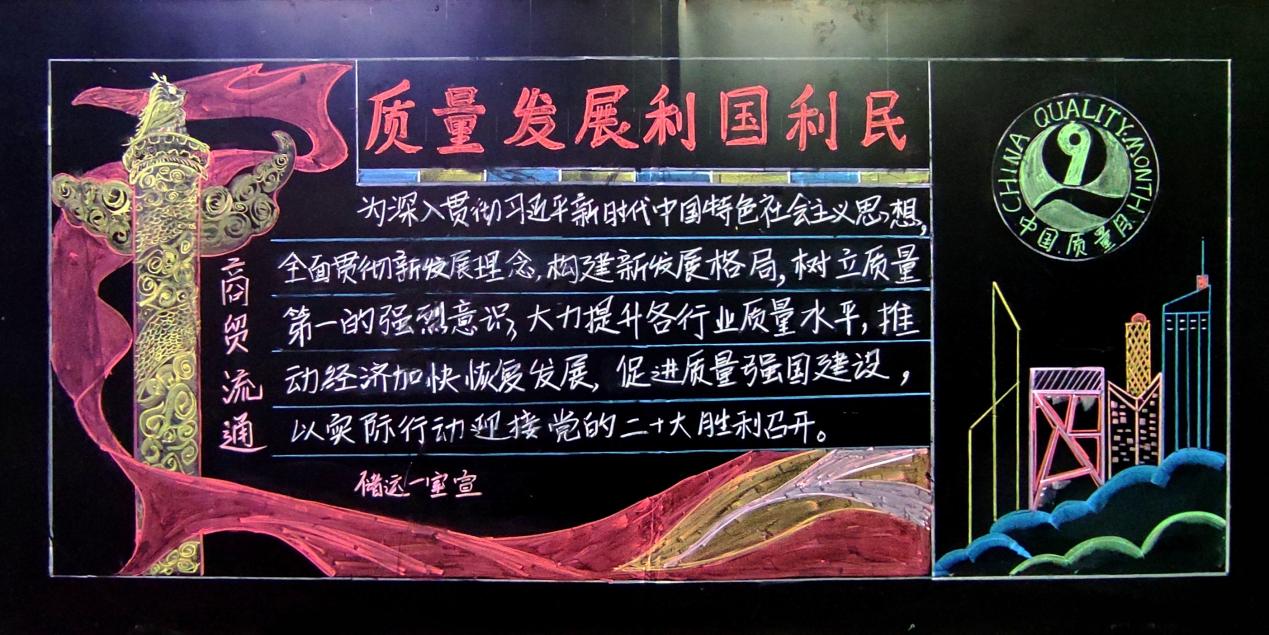 质量发展利国利民
为深入贯彻习近平新时代中国特色社会主义思想,
全面贯彻新发展理念,构建新发展格局,树立质量
第一的强烈意识,大力提升各行业质量水平,推
动经济加快恢复发展,促进质量强国建设,
以实际行动迎接党的二十大胜利召开。
商贸流通
储运一室宣
CHINA QUALITY.MONTH
9
中国.质量月